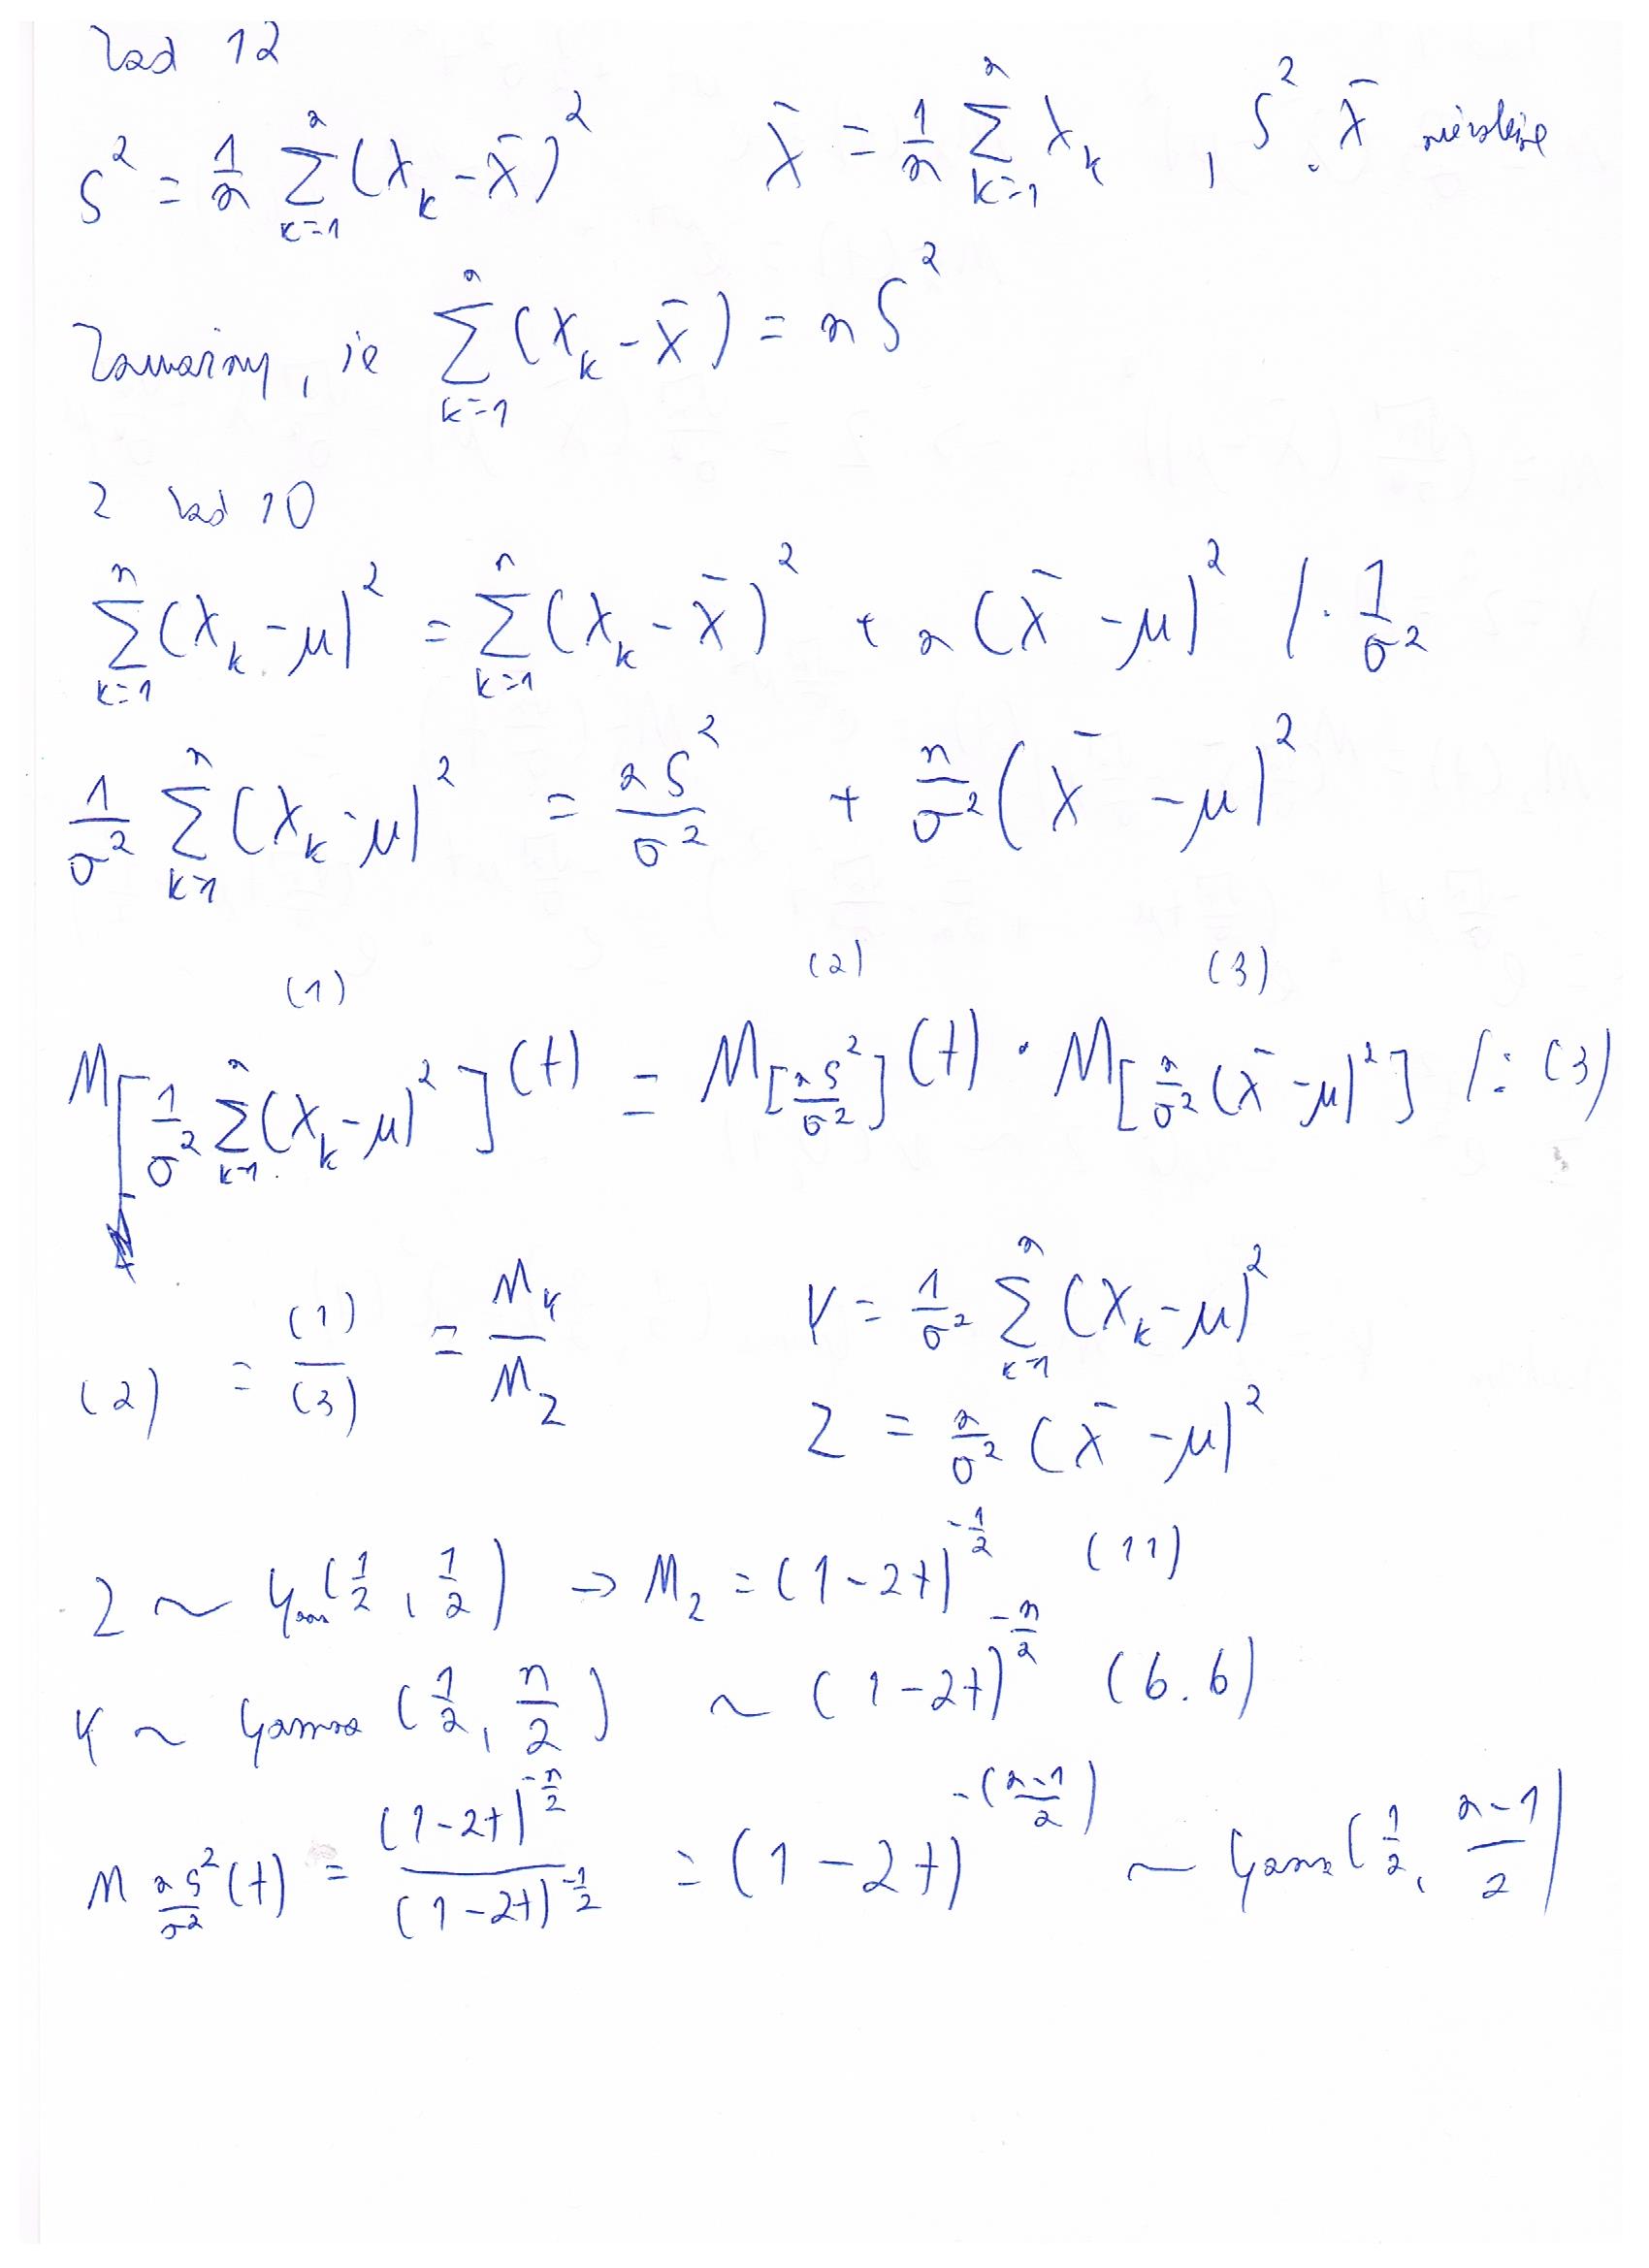 Zad 12
S² = 1/n Σ_{k=1}^{n} (X_k - X̄)² X̄ = 1/n Σ_{k=1}^{n} X_k , S², X̄ niezależne
Zauważmy, że Σ_{k=1}^{n} (X_k - X̄) = nS²
Z zad 10
Σ_{k=1}^{n} (X_k - μ)² = Σ_{k=1}^{n} (X_k - X̄)² + n(X̄ - μ)² / · 1/σ²
1/σ² Σ_{k=1}^{n} (X_k - μ)² = nS²/σ² + n/σ² (X̄ - μ)²
(1) (2) (3)
M_{[1/σ² Σ_{k=1}^{n} (X_k - μ)²]}(t) = M_{[nS²/σ²]}(t) · M_{[n/σ² (X̄ - μ)²]} / : (3)
(2) = (1)/(3) = M_Y/M_Z Y = 1/σ² Σ_{k=1}^{n} (X_k - μ)²
Z = n/σ² (X̄ - μ)²
Z ~ Gam(1/2, 1/2) → M_Z = (1-2t)^{-1/2} (11)
Y ~ Gamma (1/2, n/2) ~ (1-2t)^{-n/2} (6.6)
M_{nS²/σ²}(t) = (1-2t)^{-n/2} / (1-2t)^{-1/2} = (1-2t)^{-((n-1)/2)} ~ Gamma(1/2, (n-1)/2)